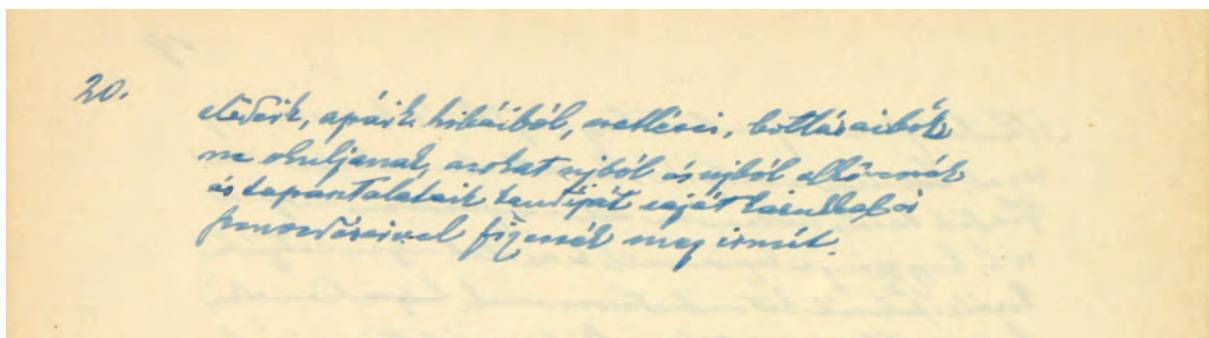 20.
elődeik, apáik hibáiból, botlásaiból
ne okuljanak, azokat ujból és ujból elkövessék
és tapasztalataik tandíját saját és
szenvedéseivel fizessék meg ismét.